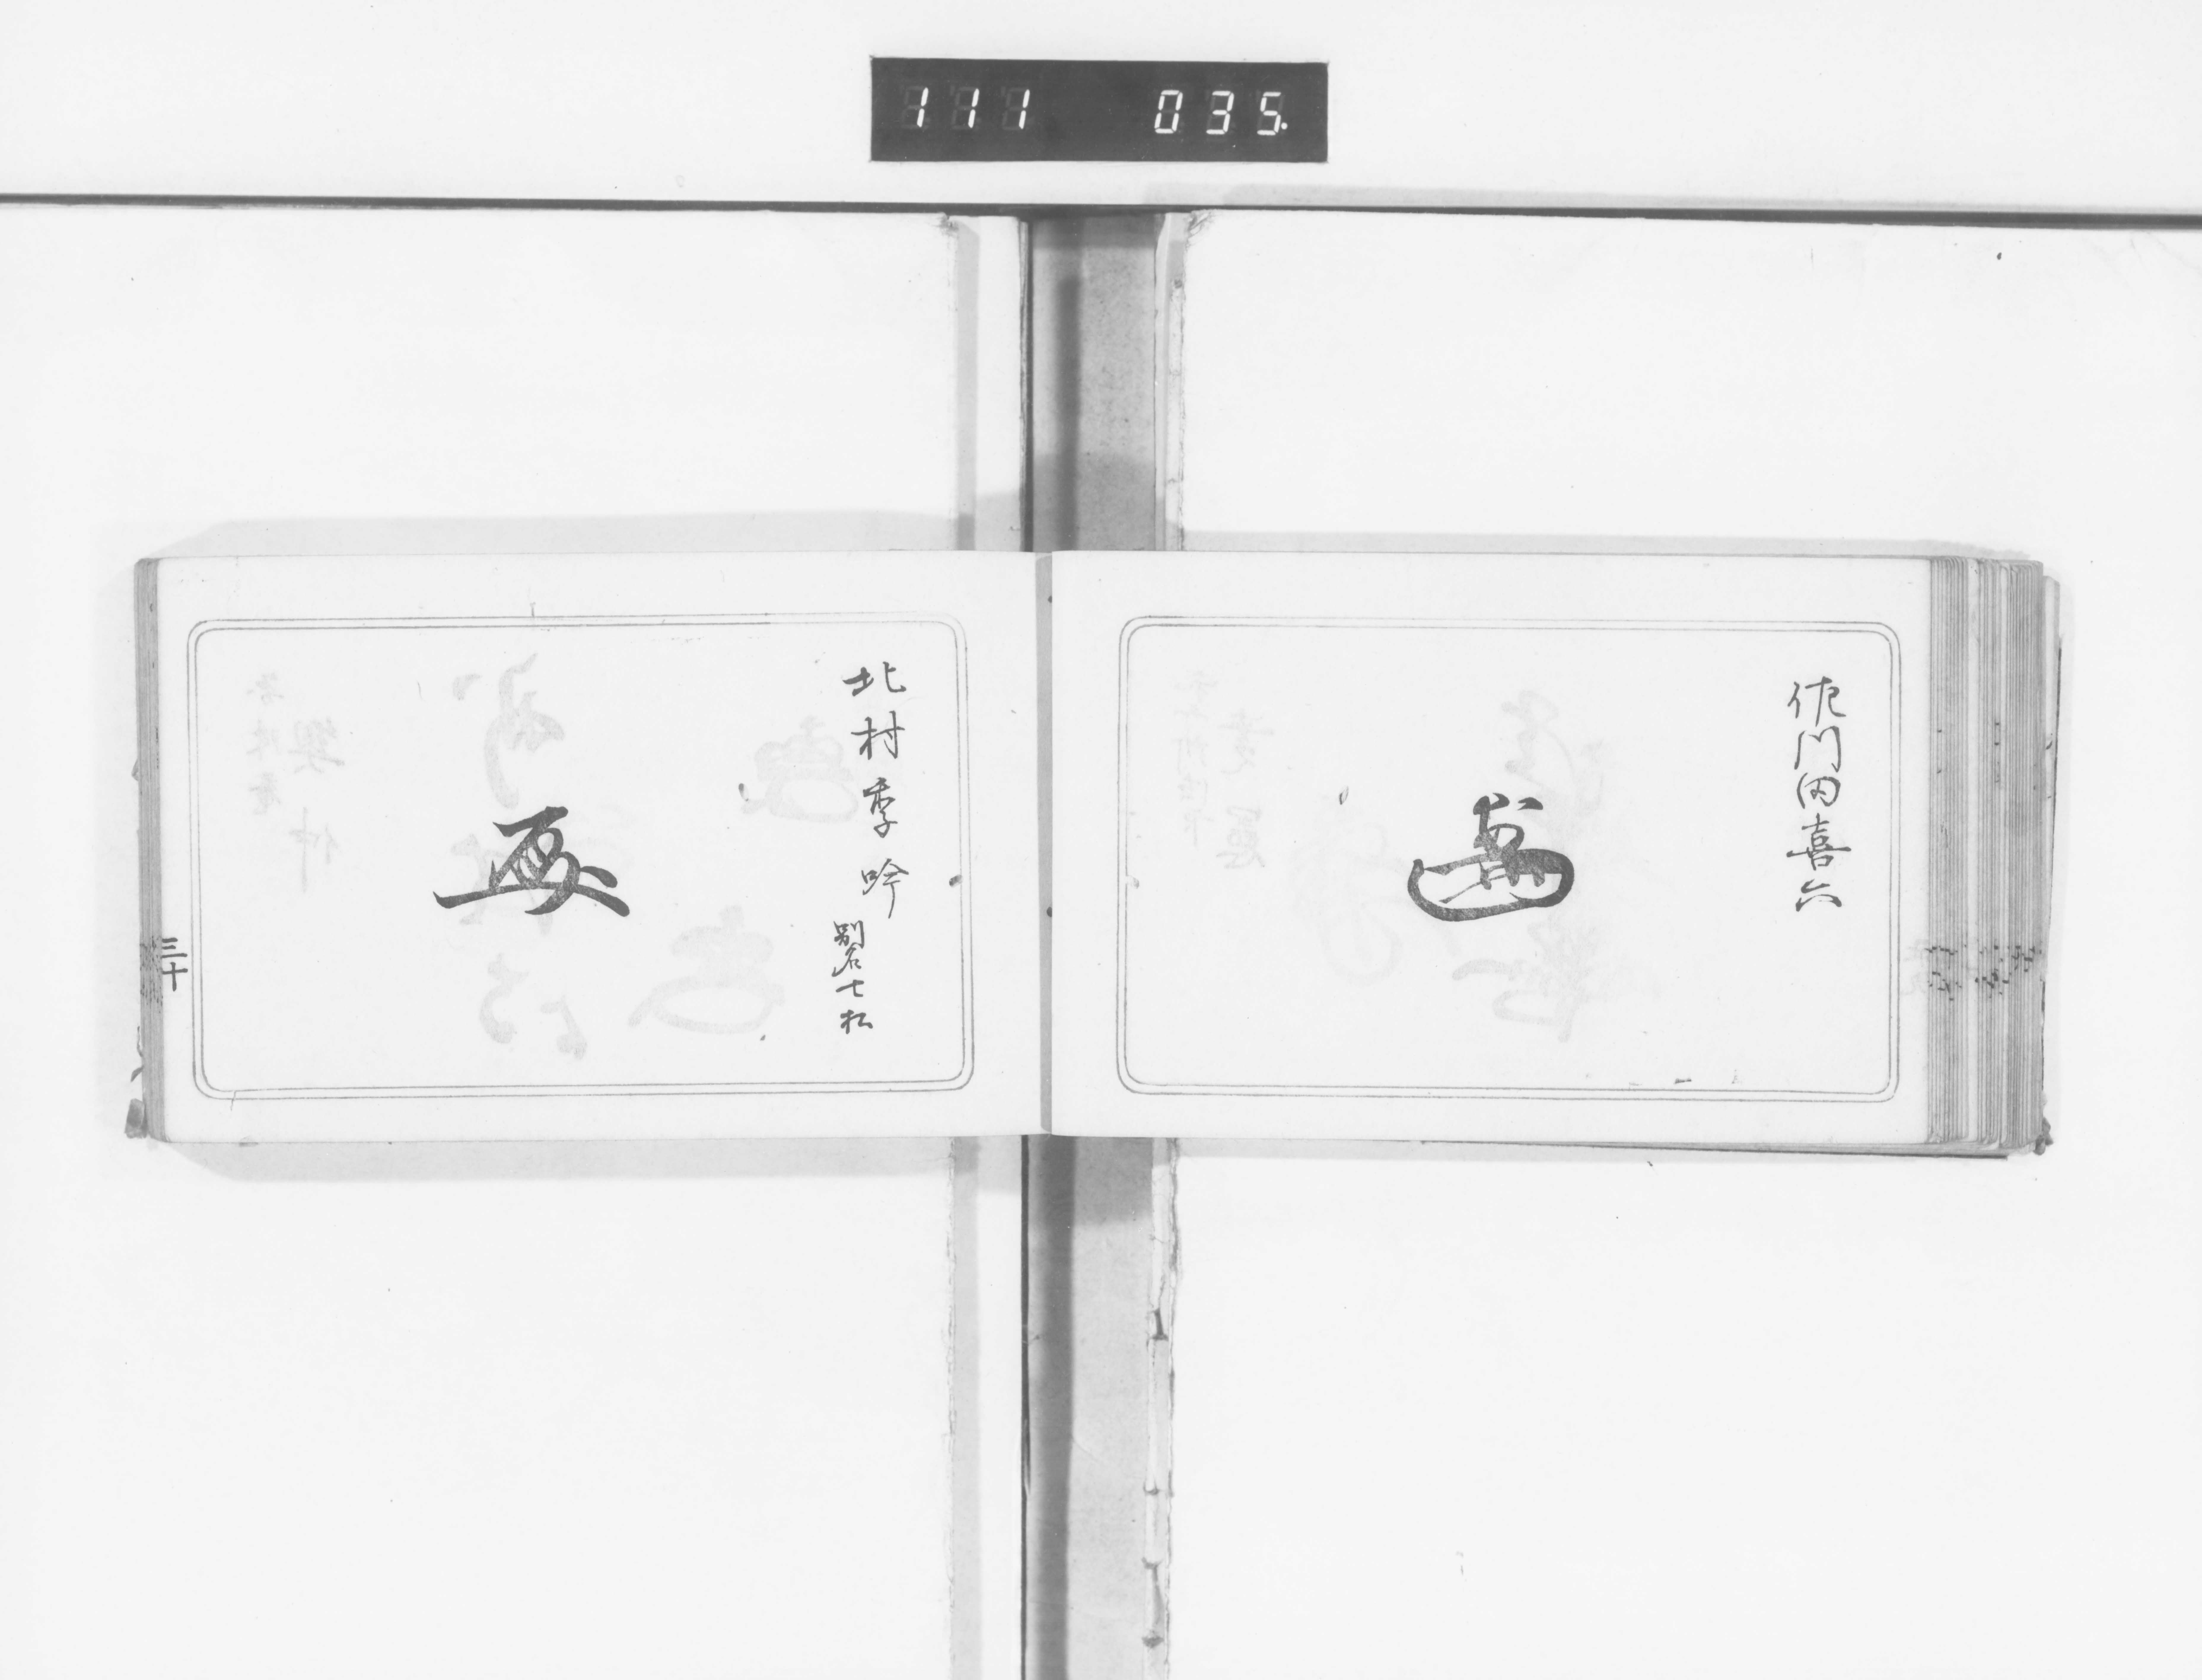 111 035.
佐門田喜六
北村季吟
別名七松
三十